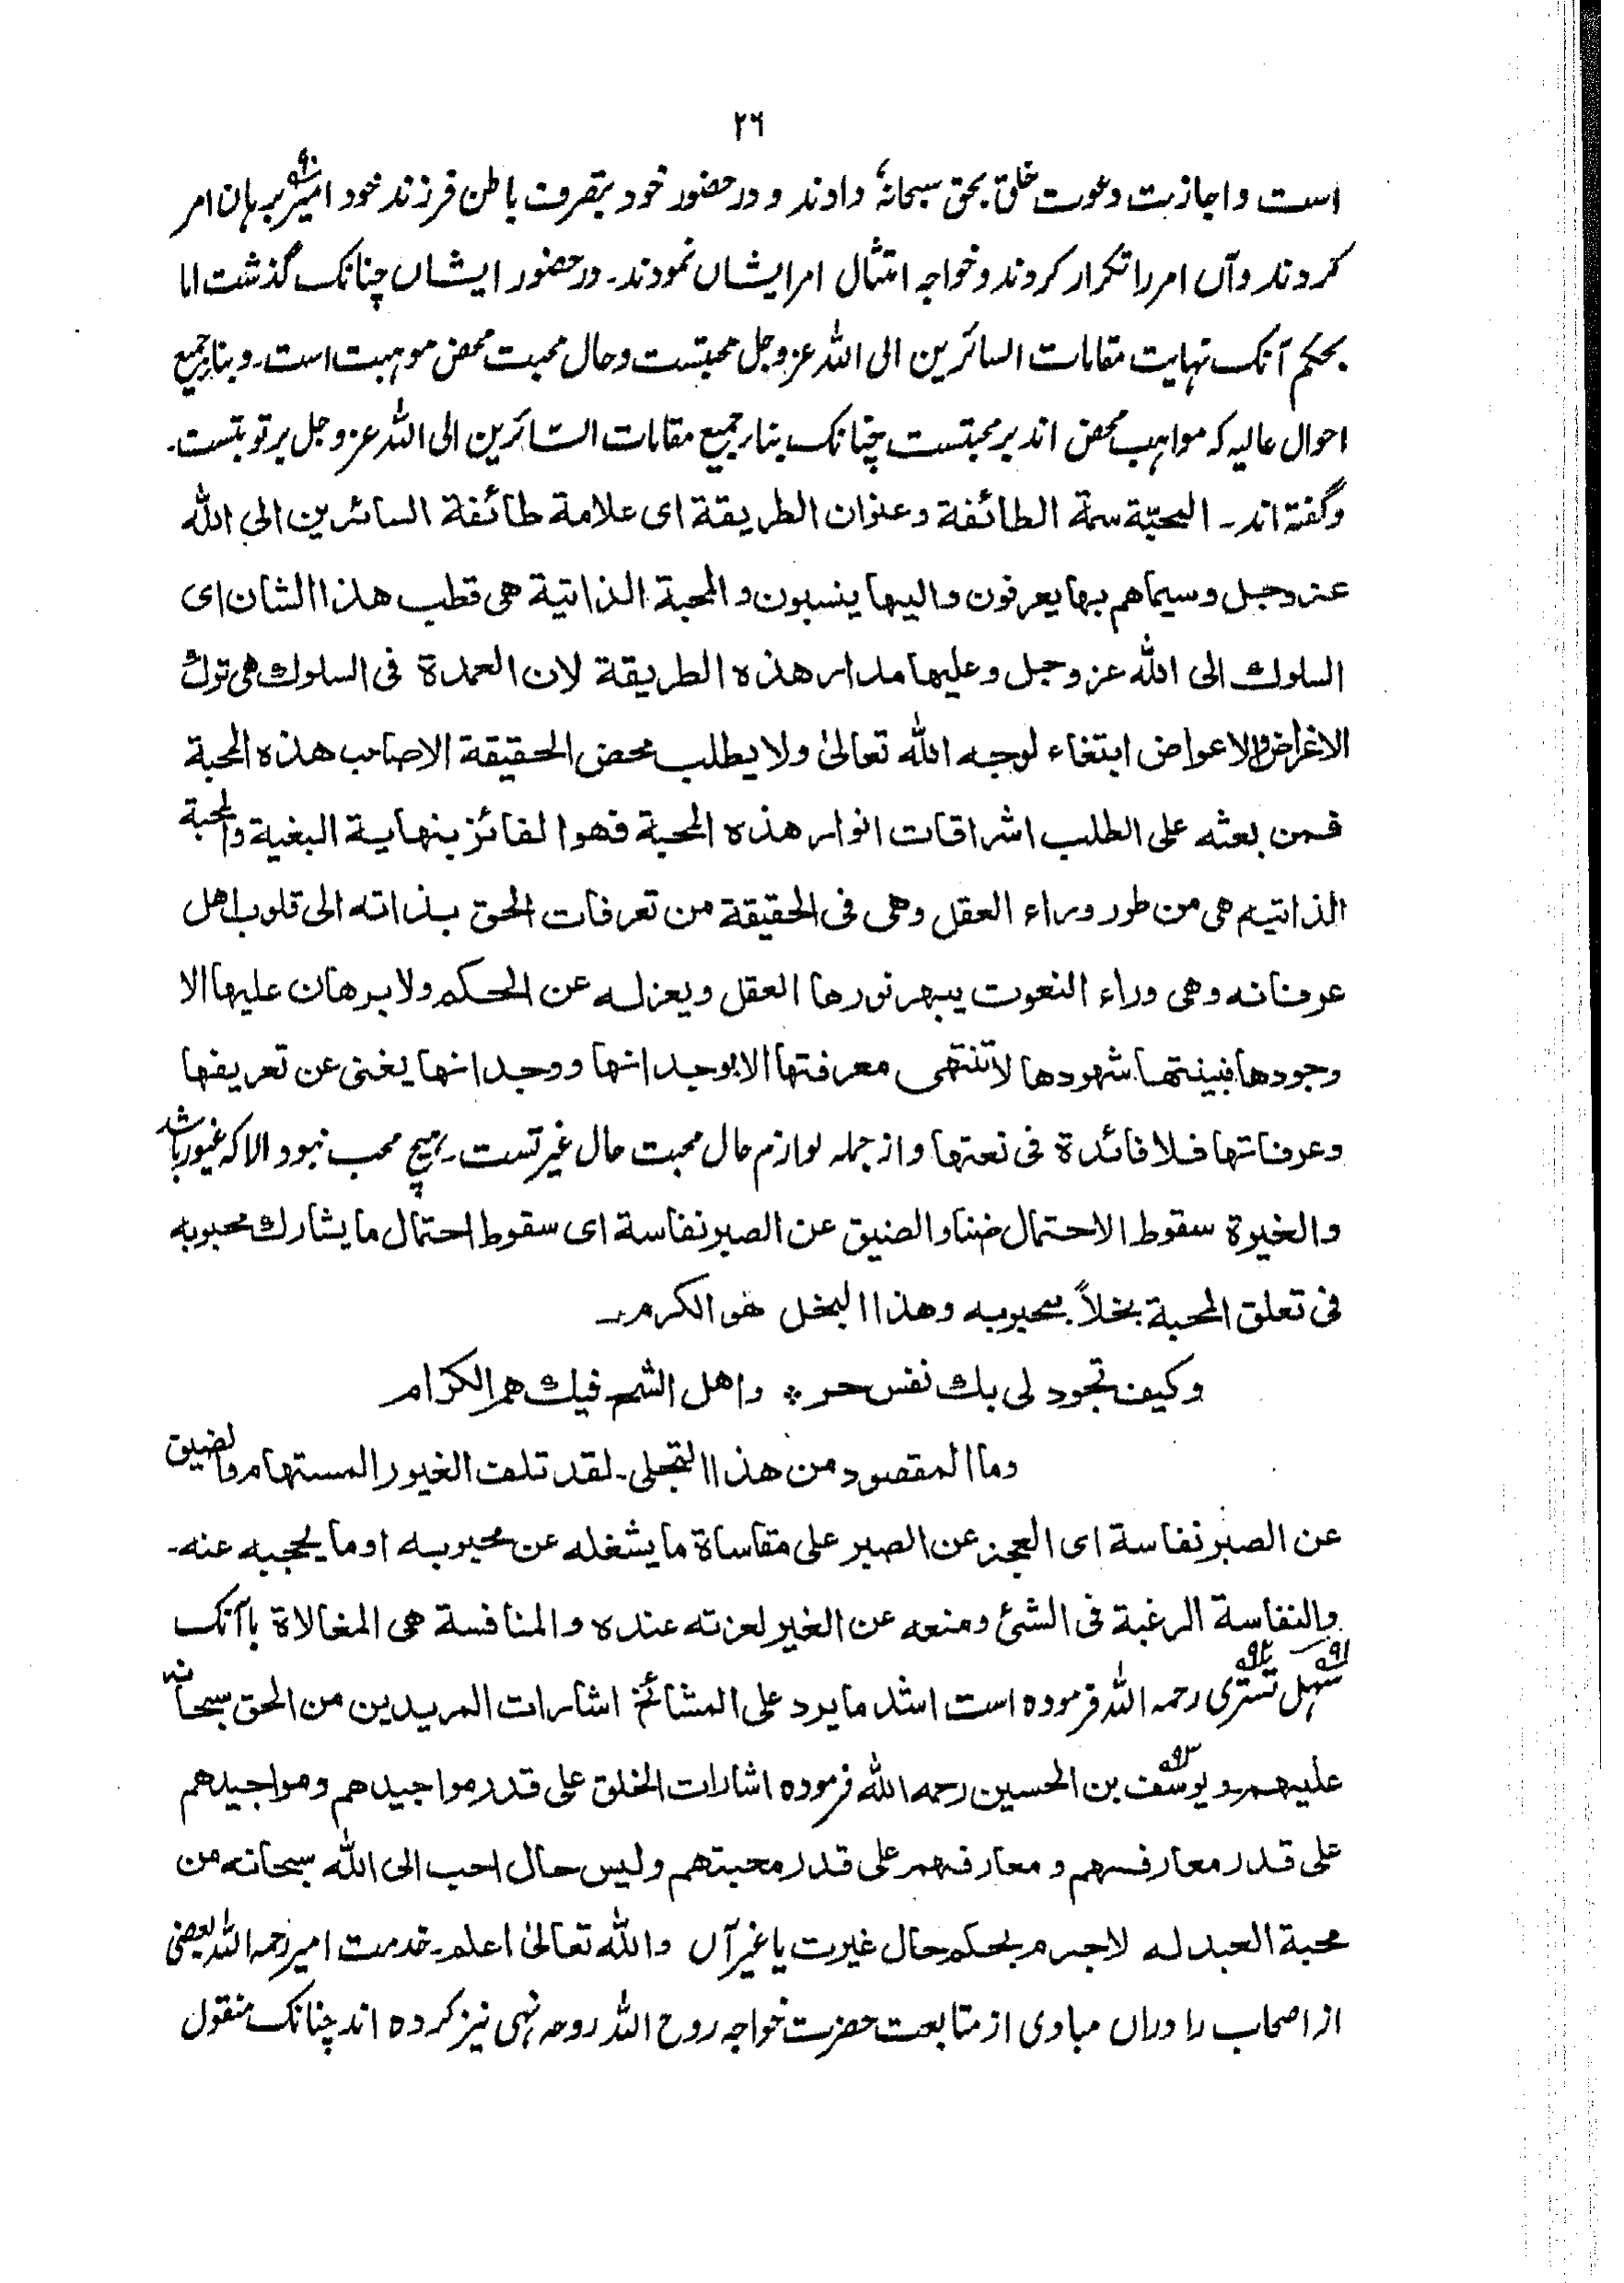 ۲۶
است و اجازت دعوت خلق بحق سبحانہٗ دادند و در حضور خود بتصرف باطن فرزند خود امیر۹۰ برہان امر
کردند وآں امر را تکرار کردند و خواجہ امتثال امر ایشاں نمودند۔ در حضور ایشاں چنانک گذشت اما
بحکم آنک نہایت مقامات السائرین الی اللہ عزوجل محبتست وحال محبت محض موہبت است۔ و بنا بر جمیع
احوال عالیہ کہ مواہب محض اند بر محبتست چنانک بنا بر جمیع مقامات السّائرین الی اللہ عزوجل بر توبتست۔
وگفتہ اند۔ المحبّة سمة الطائفة وعنوان الطریقة ای علامة طائفة السائرین الی الله
عزوجل وسیماهم بها یعرفون والیها ینسبون والمحبة الذاتیة هی قطب هذا الشان ای
السلوك الی الله عزوجل وعلیها مدار هذه الطریقة لان العمدة فی السلوك هی ترك
الاغراض والاعواض ابتغاء لوجه الله تعالیٰ ولا یطلب محض الحقیقة الاصاحب هذه المحبة
فمن بعثه علی الطلب اشراقات انوار هذه المحبة فهو الفائز بنهایة البغیة والمحبة
الذاتیه هی من طور وراء العقل وهی فی الحقیقة من تعرفات الحق بذاته الی قلوب اهل
عرفانه وهی وراء النعوت یبهر نورها العقل ویعزله عن الحکم ولا برهان علیها الا
وجودها فبینتها شهودها لا تنتهی معرفتها الا بوجدانها ووجدانها یغنی عن تعریفها
وعرفانها فلا فائدة فی نعتها و از جملہ لوازم حال محبت حال غیرتست۔ ہیچ محب نبود الا کہ غیور باشد
والغیرة سقوط الاحتمال ضنا والضیق عن الصبر نفاسة ای سقوط احتمال ما یشارك محبوبه
فی تعلق المحبة بخلاً بمحبوبه وهذا البخل هو الکرم۔
وکیف تجود لی بك نفس حر ٭ واهل الشح فیك هم الکرام
وما المقصود من هذا التجلی۔ لقد تلف الغیور المستهام والضیق
عن الصبر نفاسة ای العجز عن الصبر علی مقاساة ما یشغله عن محبوبه او ما یحجبه عنه۔
والنفاسة الرغبة فی الشئ ومنعه عن الغیر لعزته عنده والمنافسة هی المغالاة باآنک
سہل۹۱ تستری۹۲ رحمہ اللہ فرمودہ است اشد ما یرد علی المشائخ اشارات المریدین من الحق سبحانه
علیهم۔ و یوسف۹۳ بن الحسین رحمہ اللہ فرمودہ اشارات الخلق علی قدر مواجیدهم ومواجیدهم
علی قدر معارفهم ومعارفهم علی قدر محبتهم ولیس حال احب الی الله سبحانه من
محبة العبد له لاجرم بحکم حال غیرت یا غیر آں والله تعالیٰ اعلم۔ خدمت امیر رحمہ اللہ بعضی
از اصحاب را دراں مبادی از متابعت حضرت خواجہ روح اللہ روحہ نہی نیز کردہ اند چنانک منقول